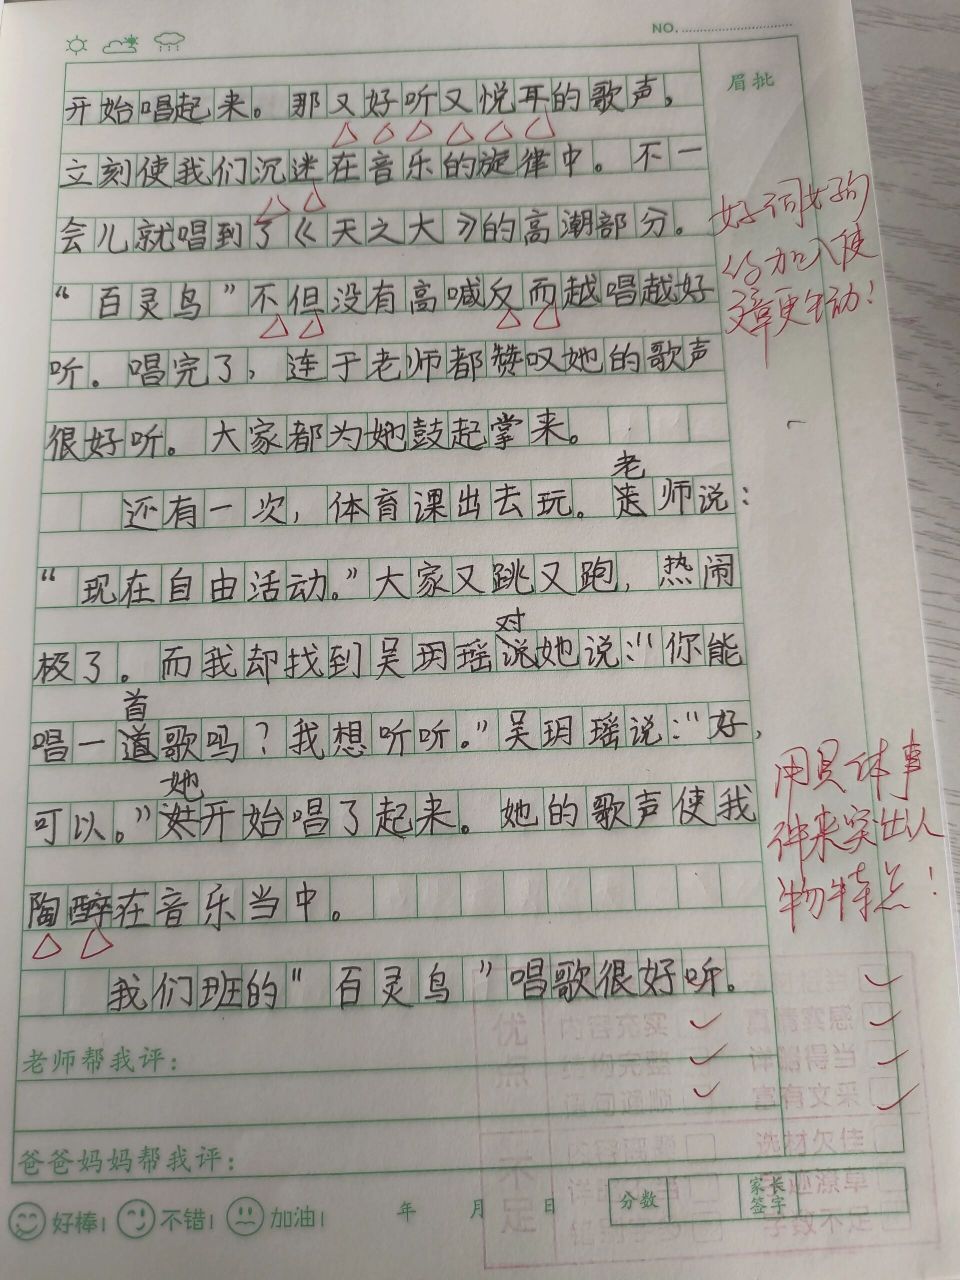 NO.
眉批
开始唱起来。那又好听又悦耳的歌声，
立刻使我们沉迷在音乐的旋律中。不一
会儿就唱到了《天之大》的高潮部分。
好词好句
的加入使
文章更生动！
“百灵鸟”不但没有高喊反而越唱越好
听。唱完了，连于老师都赞叹她的歌声
很好听。大家都为她鼓起掌来。
老
还有一次，体育课出去玩。师说：
“现在自由活动。”大家又跳又跑，热闹
对
极了。而我却找到吴玥瑶说她说：“你能
首
唱一道歌吗？我想听听。”吴玥瑶说：“好，
她
可以。”开始唱了起来。她的歌声使我
陶醉在音乐当中。
用具体事
件来突出人
物特点！
我们班的“百灵鸟”唱歌很好听。
优点
内容充实
真情实感
结构完整
详略得当
语句通顺
富有文采
老师帮我评：
爸爸妈妈帮我评：
不足
选材欠佳
字迹潦草
字数不足
好棒！
不错！
加油！
年 月 日
分数
家长签字